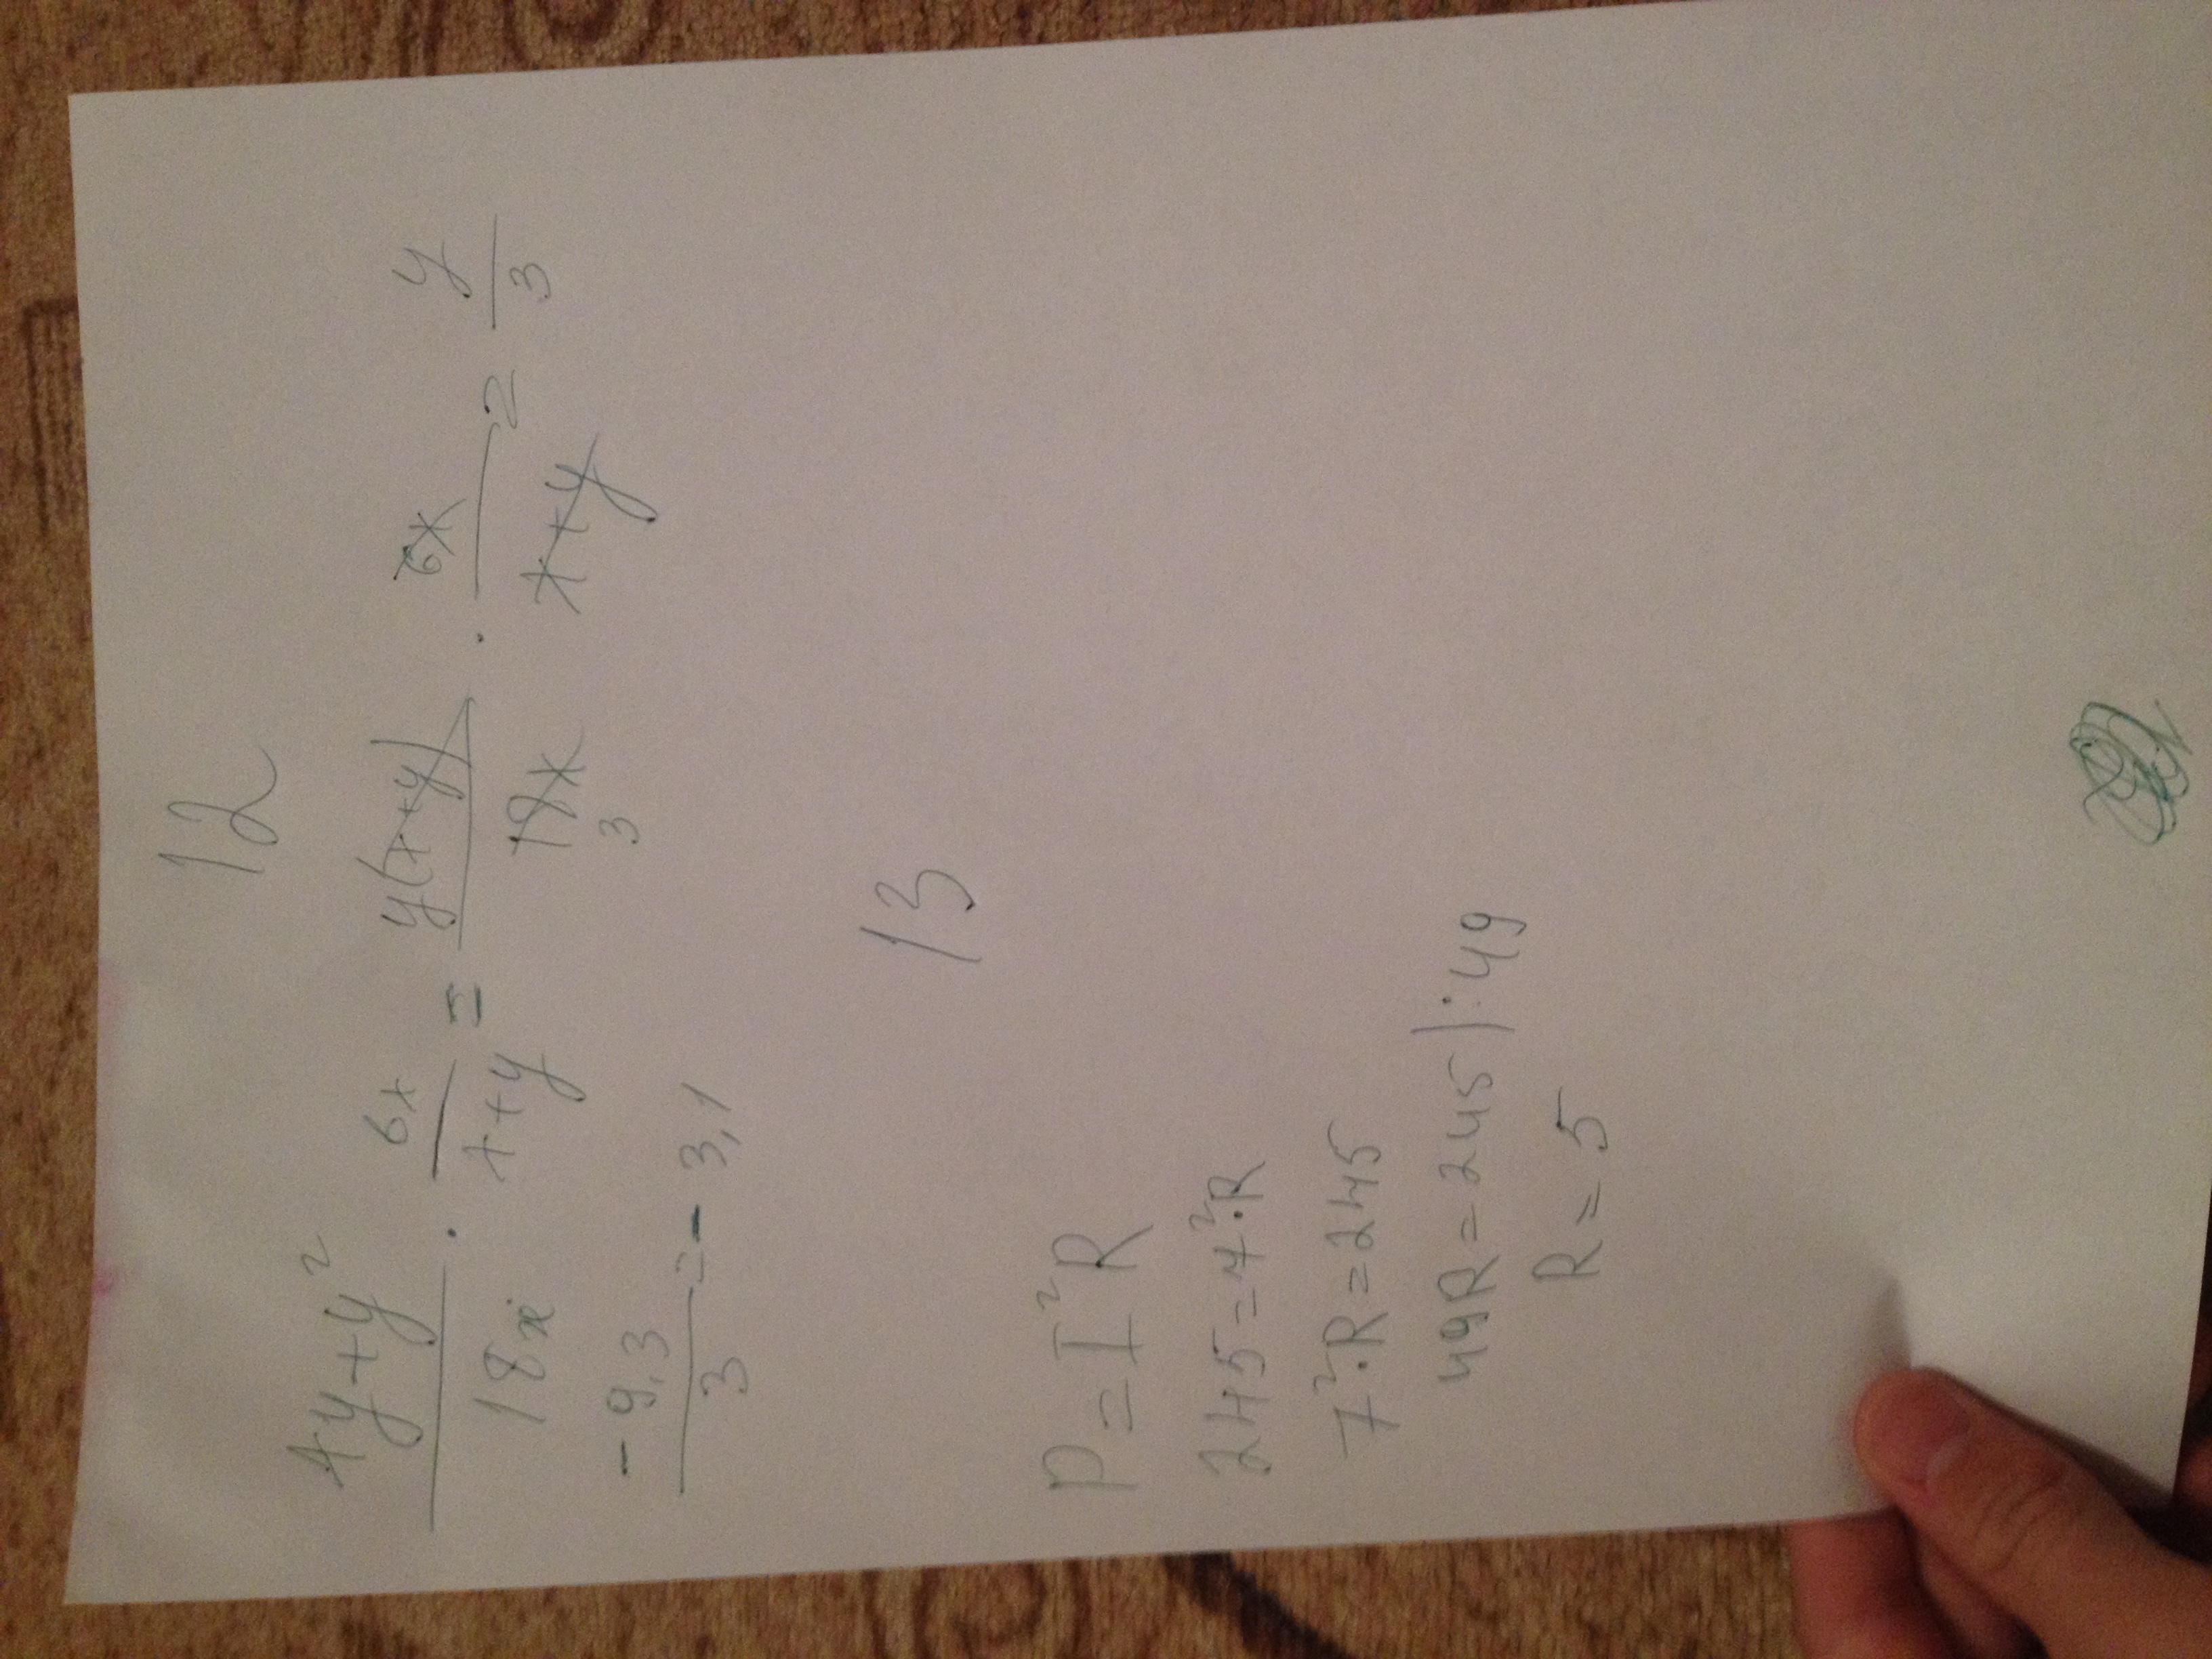 12
xy+y²/18x · 6x/x+y = y(x+y)/18x 3 · 6x/x+y = y/3
-9,3/3 = -3,1
13
P=I²R
245=7²·R
7²·R=245
49R=245|:49
R=5